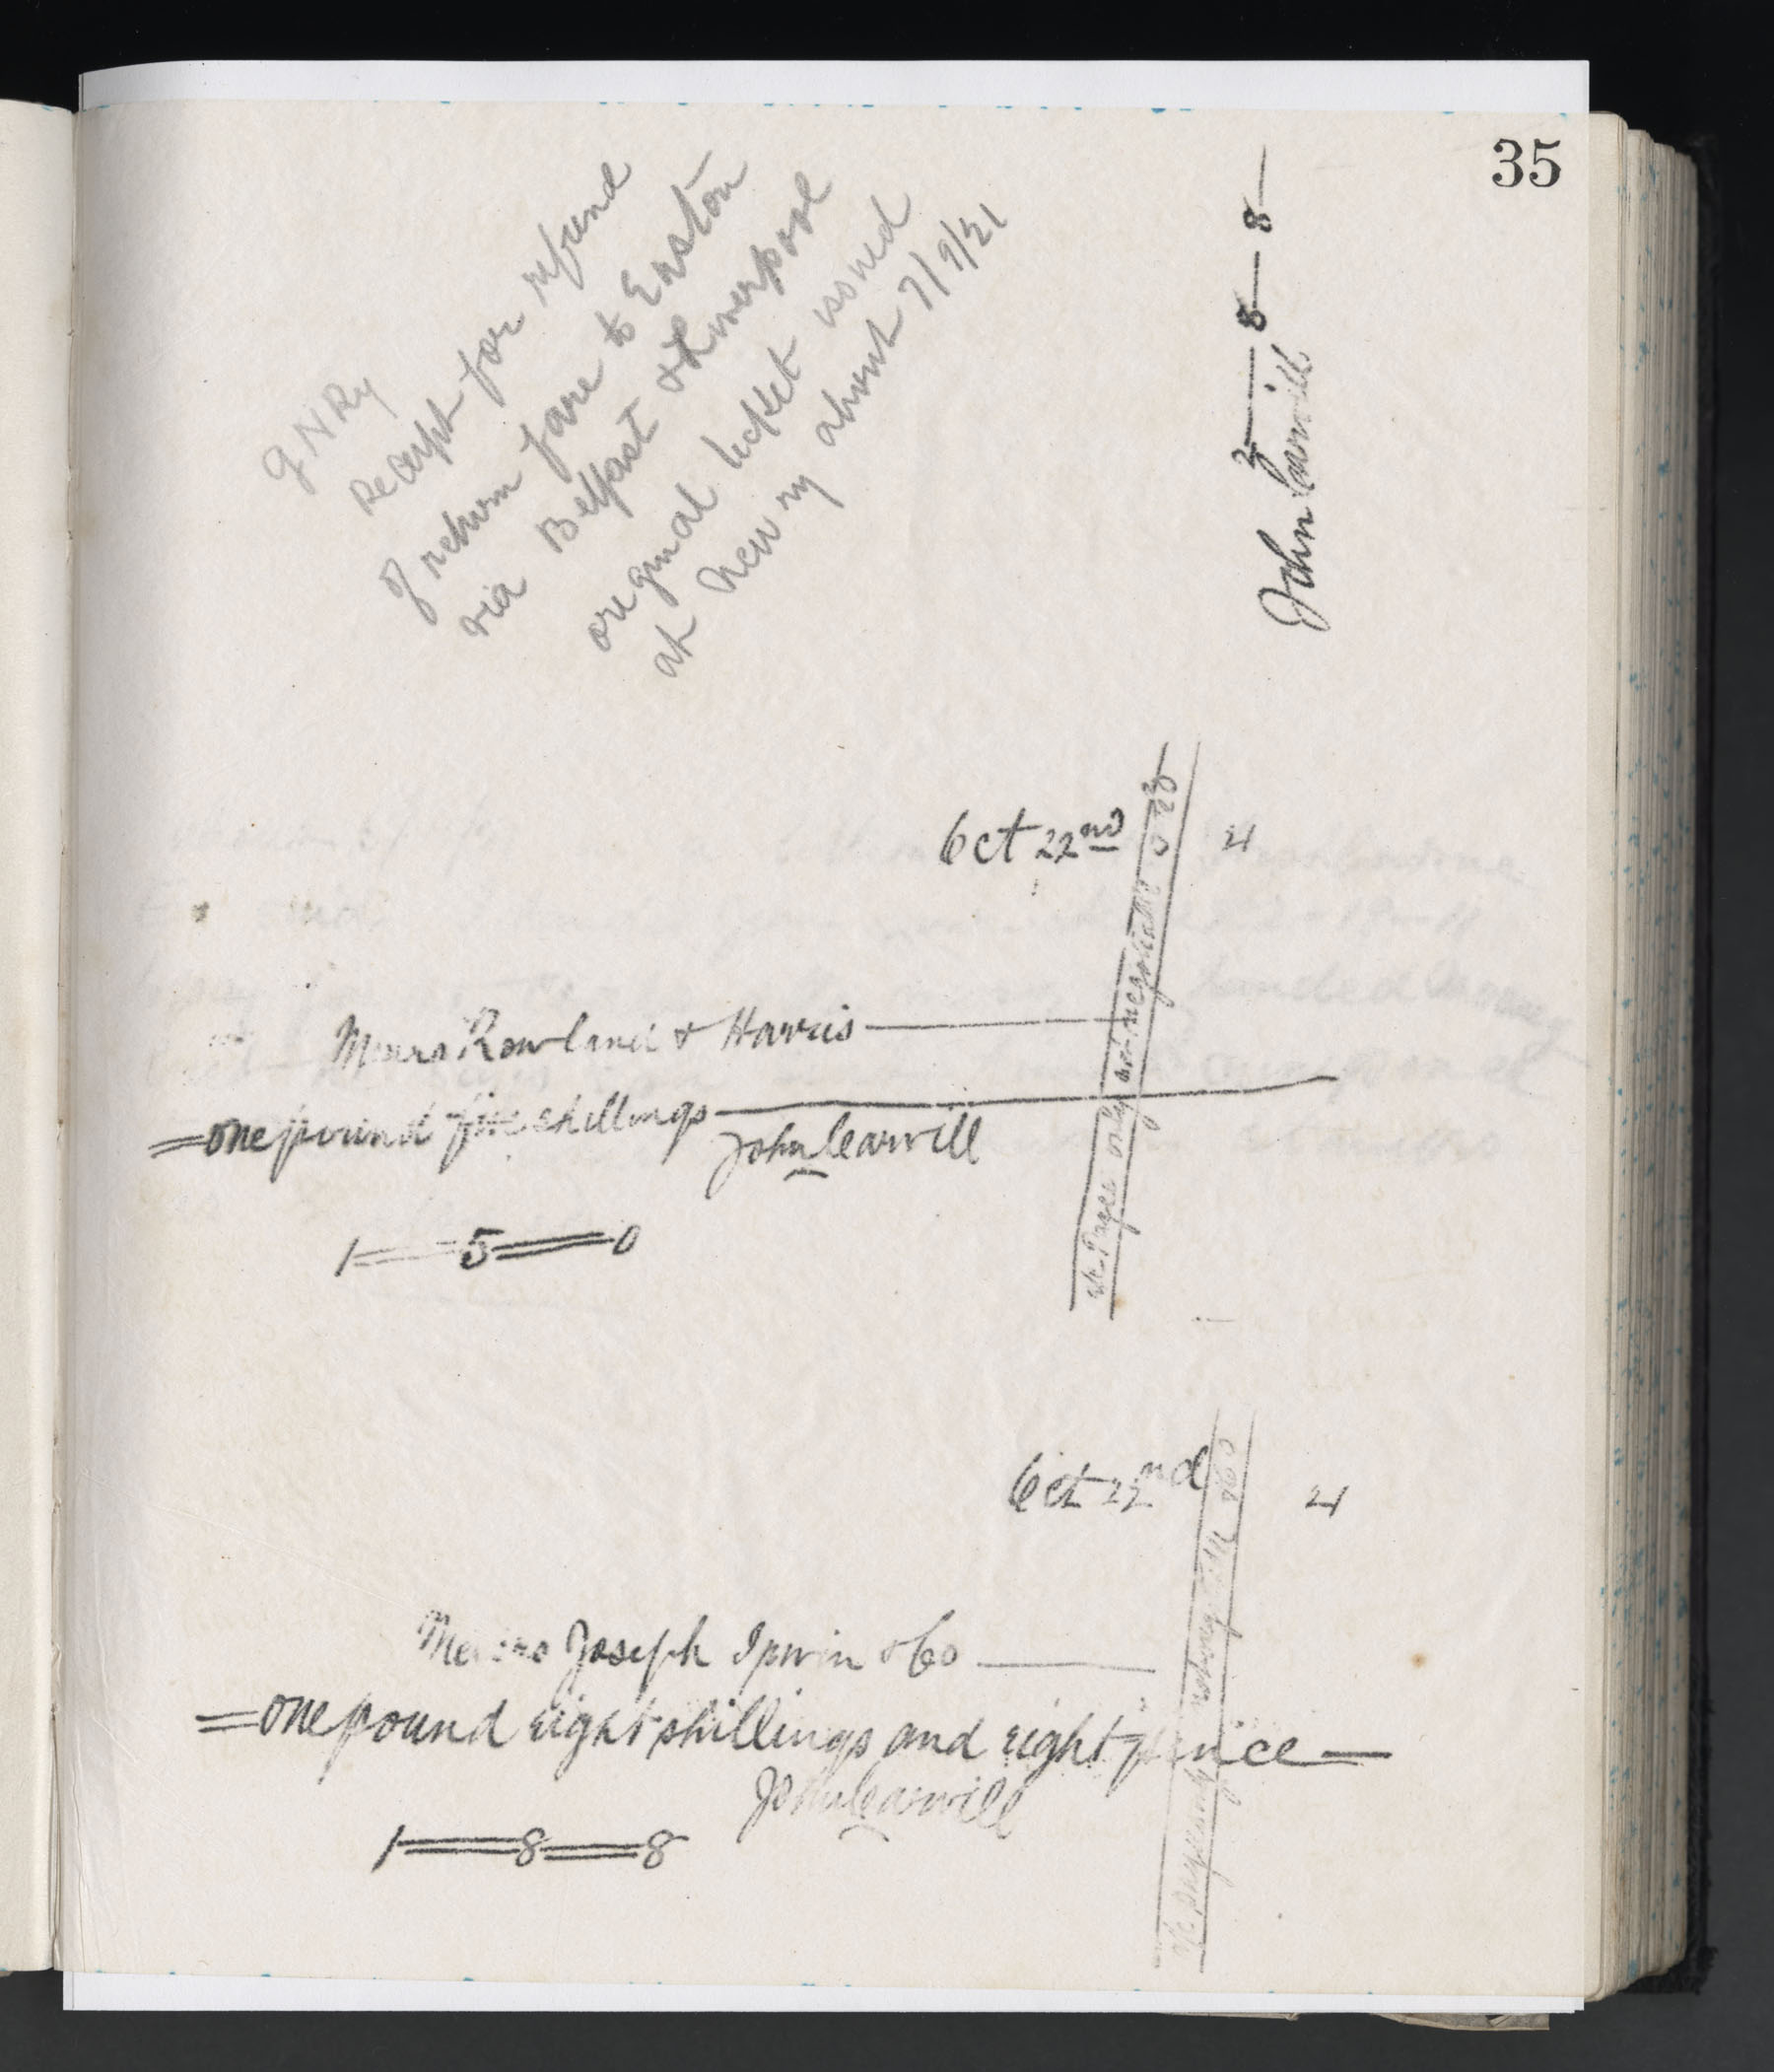 35
G N Ry
Receipt for refund
of return fare to Euston
via Belfast & Liverpool
original ticket issued
at Newry about 7/9/21
2 — 8 — 8 —
John Carvill
Oct 22nd 21
a/c Payee only not negotiable
Messrs Rowland & Harris
= one pound five shillings
John Carvill
1 = 5 = 0
Oct 22nd 21
Messrs Joseph Ipwin & Co
= one pound eight shillings and eight pence —
John Carvill
1 = 8 = 8